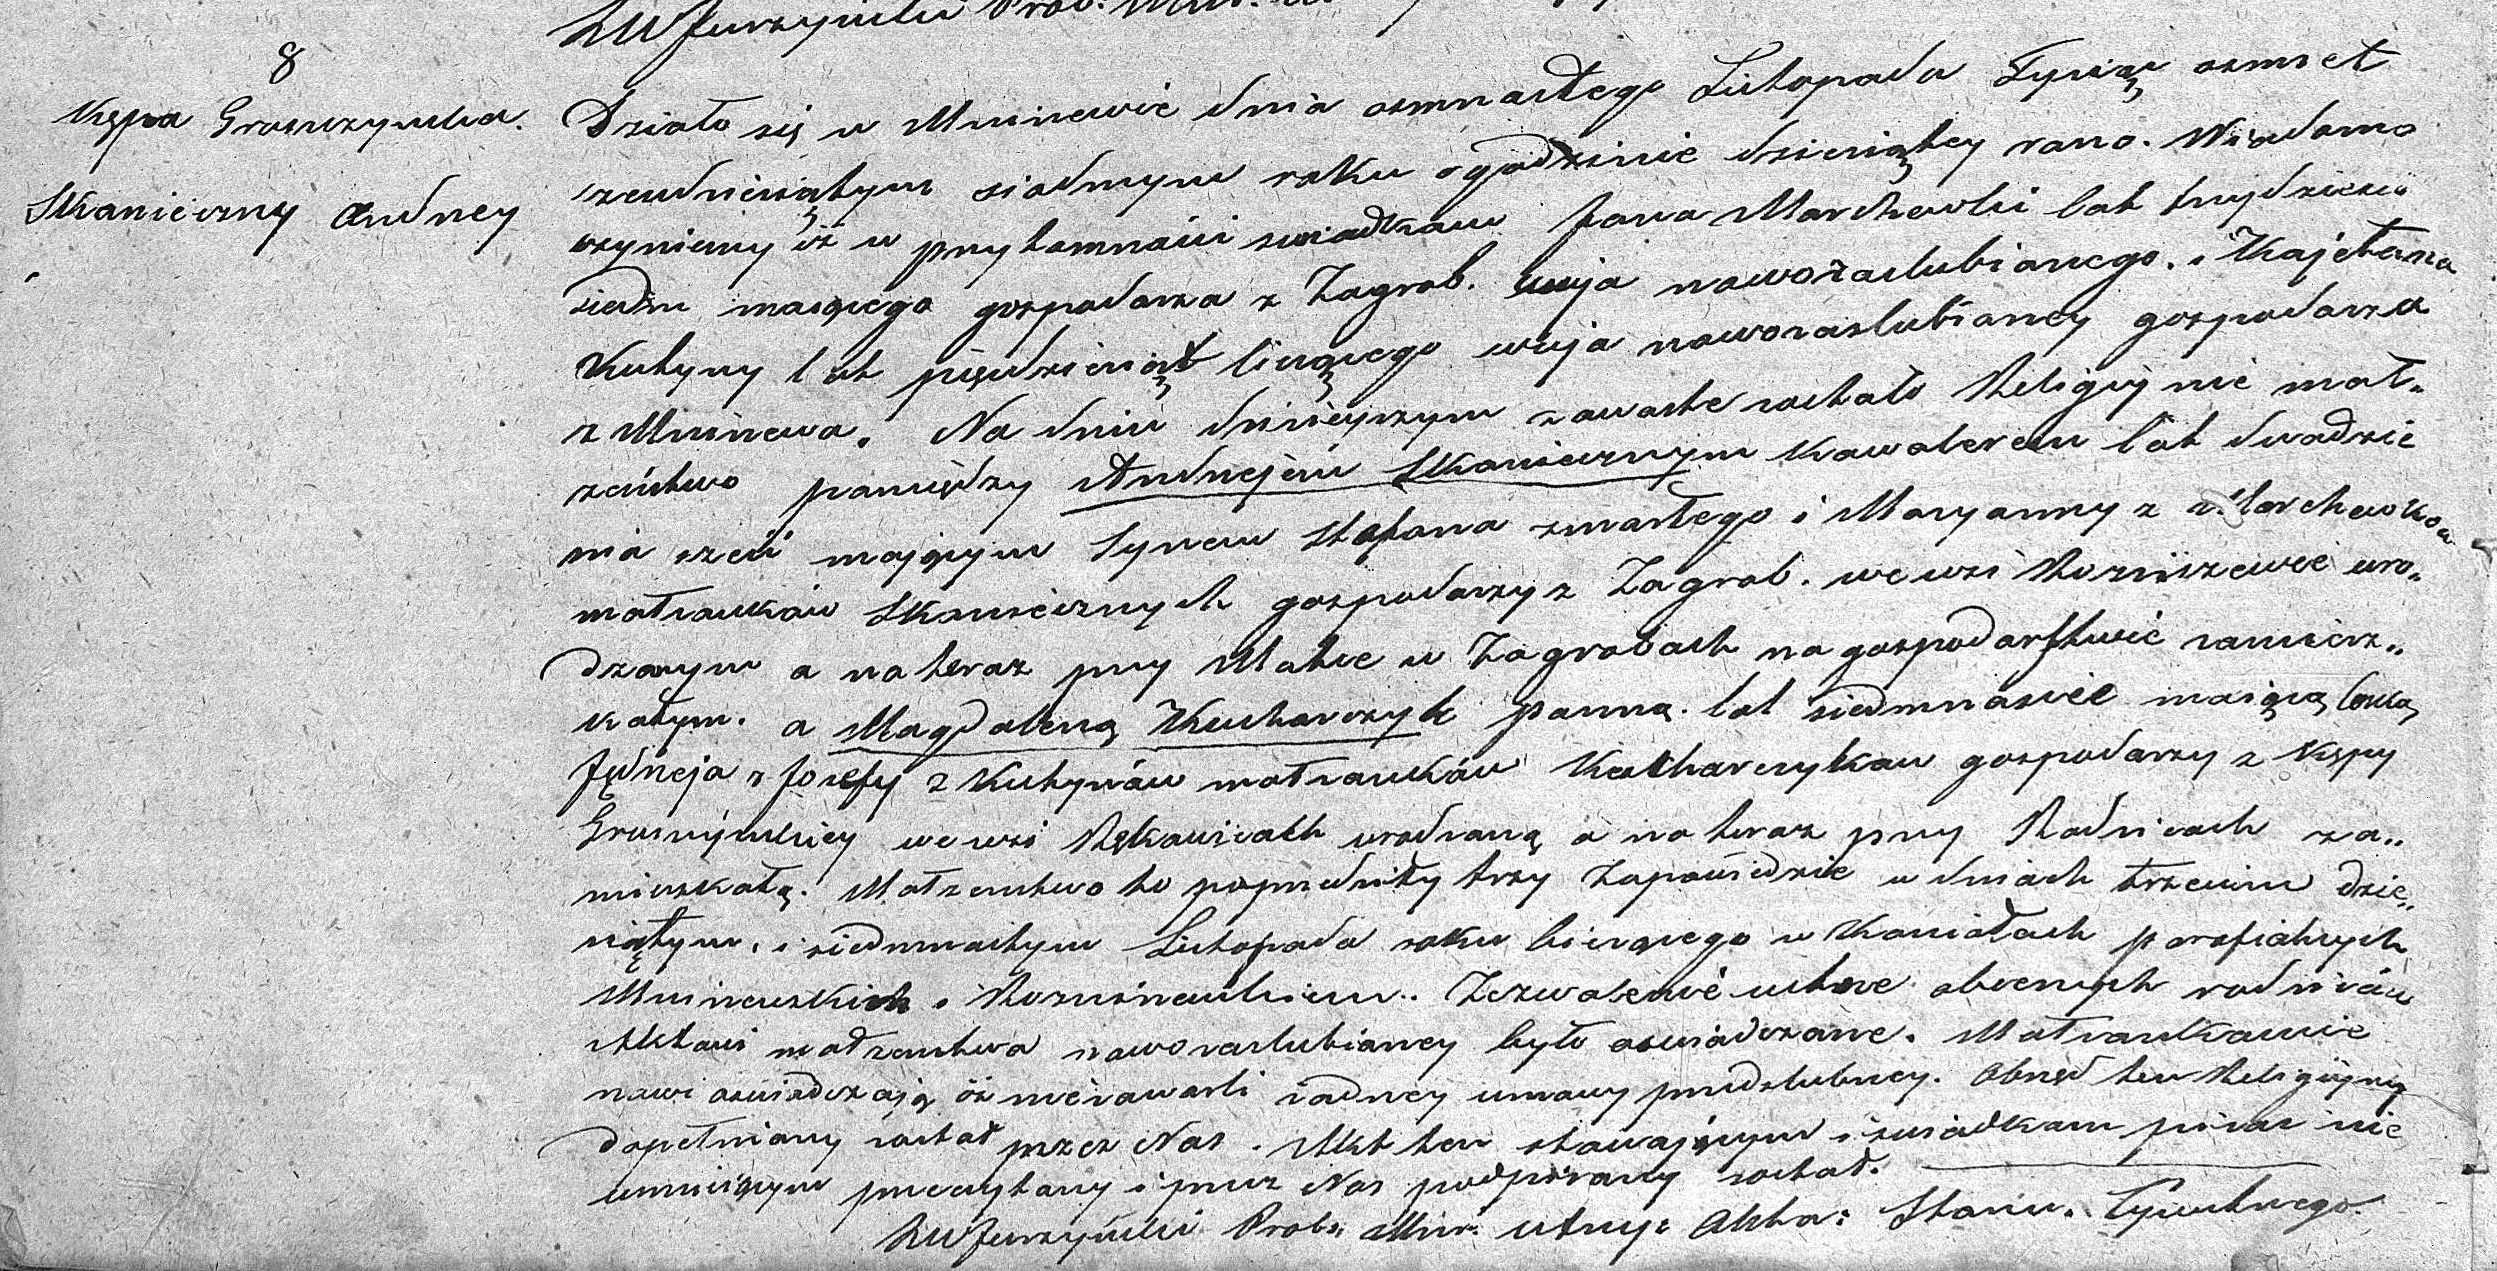 8
Kępa Gruszczyńska.
Skanieczny Andrzey
Działo się w Mniszewie dnia osmnastego Listopada Tysiąc osmset
czterdziestym siodmym roku o godzinie dziewiątey rano. Wiadomo
czyniemy iż w przytomności swiadkow Jana Marchewki lat trzydzieści
siedm maiącego gospodarza z Zagrob. wuja nowozaslubionego. i Kajetana
Kutyny lat pięćdziesiąt liczącego wuja nowozaslubioney gospodarza
z Mniszewa. Na dniu dzisieyszym zawarte zostało Religijnie mał„
zeństwo pomiędzy Andrzejem Skaniecznym Kawalerem lat dwadzie
scia sześć mającym synem Stefana zmarłego i Maryanny z Marchewkow
małzonków Skaniecznych gospodarzy z Zagrob. we wsi Rozniszewie uro„
dzonym a na teraz przy Matce w Zagrobach na gospodarstwie zamiesz„
kałym. a Magdaleną Kucharczyk panną. lat siedmnascie maiącą Corką
Jędrzeja i Jozefy z Kutynów małzonków Kucharczykow gospodarzy z Kępy
Gruszczyńskiey we wsi Rękowicach urodzoną a na teraz przy Rodzicach za„
mieszkałą. Małzenstwo to poprzedziły trzy Zapowiedzie w dniach trzecim dzie„
siątym. i siedmnastym Listopada roku bieżącego w Kosciołach parafialnych
Mniszewskim i Rozniszewskim. Zezwolenie ustne obecnych rodziców
Aktowi małzenstwa nowozaslubioney było oswiadczone. Małzonkowie
nowi oswiadczają iż nie zawarli żadney umowy przedslubney. Obrzęd ten Religijny
dopełniony został przez Nas. Akt ten stawającym i swiadkom pisac nie
umiejącym przeczytany i przez Nas podpisany został.
Prob: Mnis. utrzy: Akta: Stanu. Cywilnego.